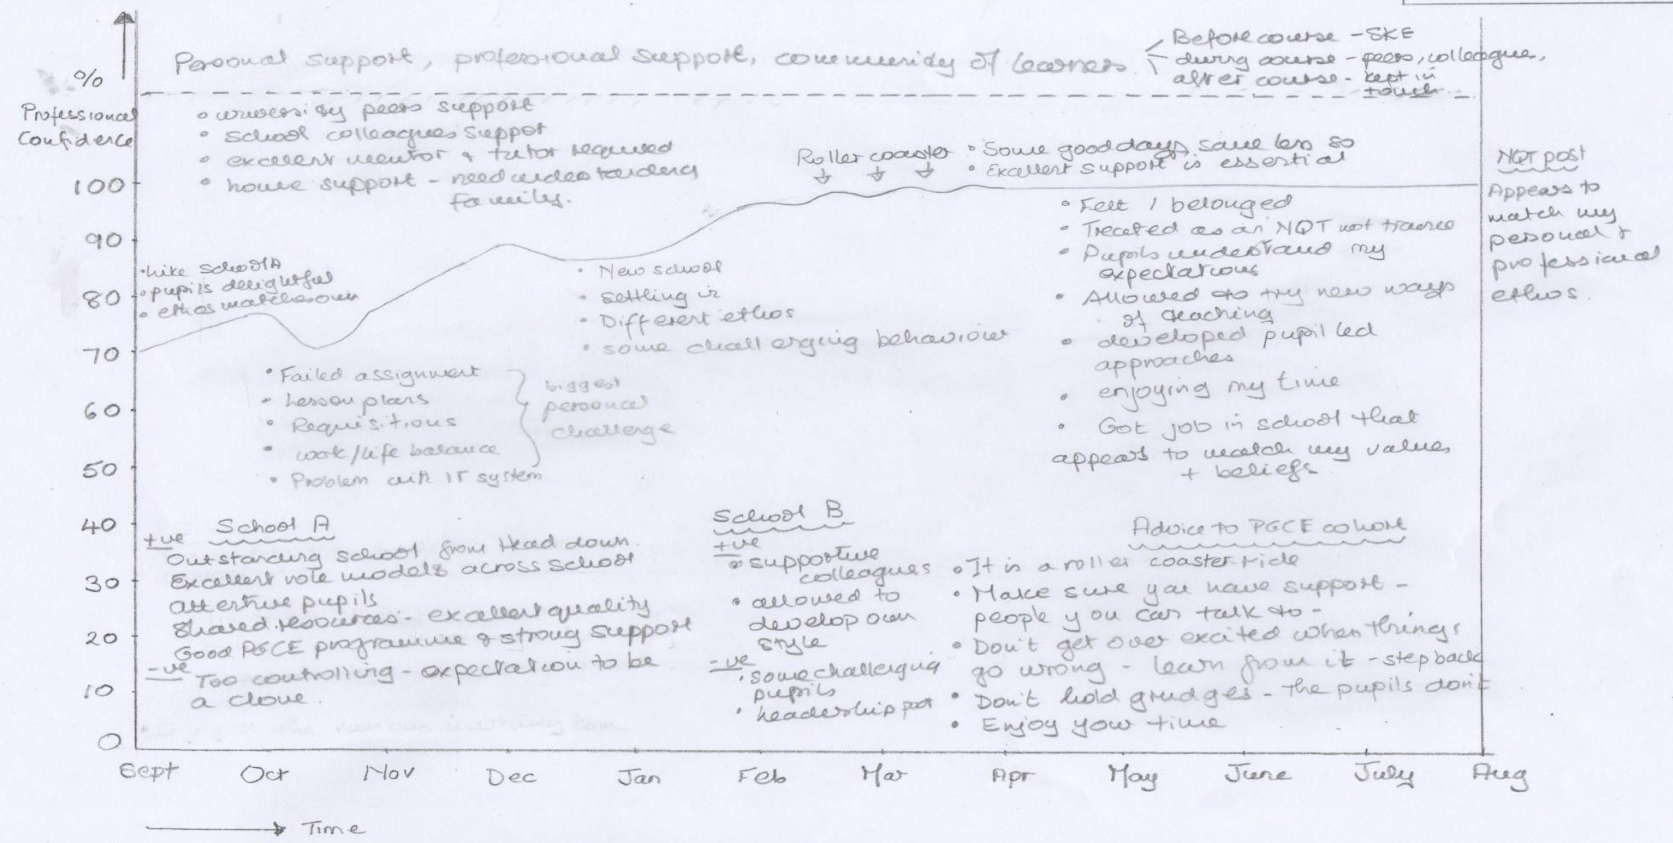 Personal support, professional support, community of learners
Before course - SKE
during course - peers, colleague,
after course - kept in
touch
%
Professional
Confidence
• university peers support
• school colleagues suppot
• excellent mentor + tutor required
• home support - need understanding
family.
Roller coaster
• Some good days, some less so
• Excellent support is essential
NQT post
Appears to
match my
personal +
professional
ethos.
100
90
80
70
60
50
40
30
20
10
0
• like School A
• pupils delightful
• ethos matches own
• New school
• Settling in
• Different ethos
• some challenging behaviour
• Felt I belonged
• Treated as an NQT not trainee
• Pupils understand my
expectations
• Allowed to try new ways
of teaching
• developed pupil led
approaches
• enjoying my time
• Got job in school that
appears to match my values
+ beliefs
• Failed assignment
• Lesson plans
• Requisitions
• work/life balance
• Problem with IT system
biggest
personal
challenge
School A
+ve
Outstanding school from Head down.
Excellent role models across school
attentive pupils
Shared resources - excellent quality
Good PGCE programme & strong support
-ve Too controlling - expectation to be
a clone.
School B
+ve
• supportive
colleagues
• allowed to
develop own
style
-ve
• some challenging
pupils
• leadership
Advice to PGCE cohort
• It is a roller coaster ride
• Make sure you have support -
people you can talk to -
• Don't get over excited when things
go wrong - learn from it - step back
• Don't hold grudges - the pupils don't
• Enjoy your time
Sept Oct Nov Dec Jan Feb Mar Apr May June July Aug
Time